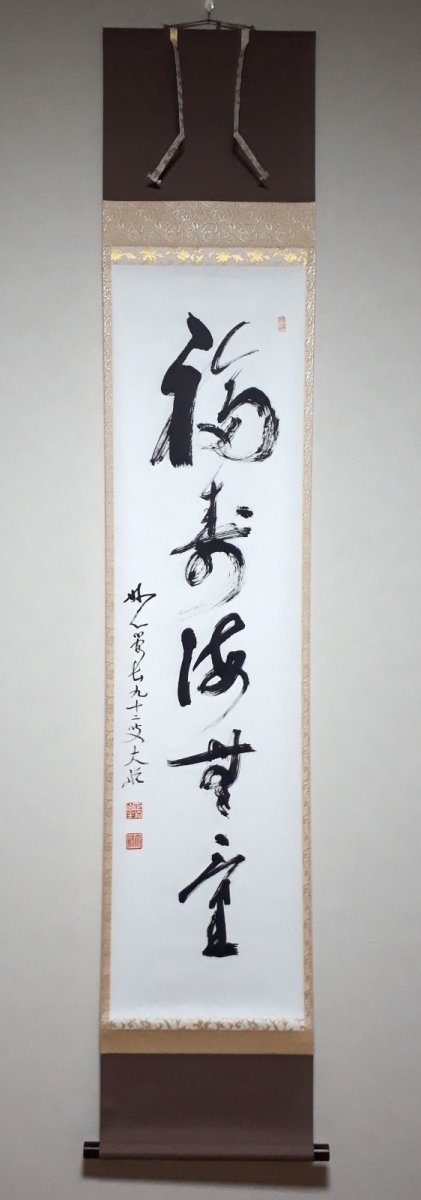 福寿海無量
妙心管長九十二叟大航